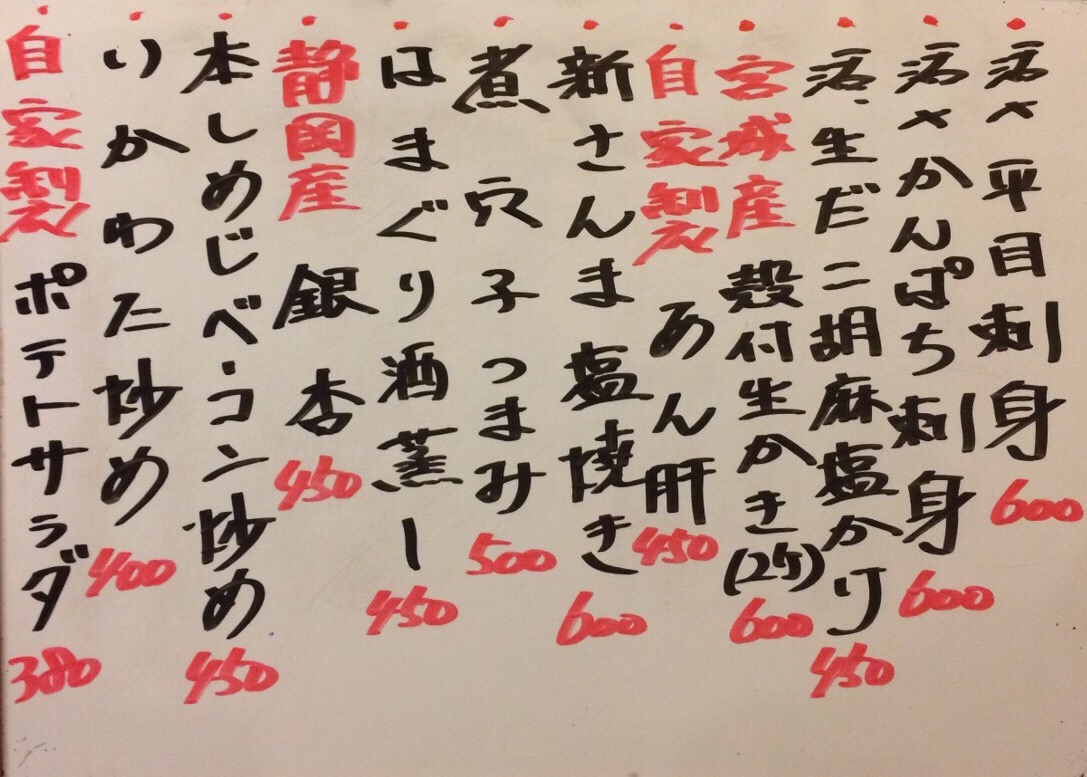 活〆平目刺身 600
活〆かんぱち刺身 600
活・生だこ胡麻塩かけ 450
宮城産 殻付生かき(2ケ) 600
自家製 あん肝 450
新さんま塩焼き 600
煮穴子つまみ 500
はまぐり酒蒸し 450
静岡産 銀杏 450
本しめじベーコン炒め 450
いかわた炒め 400
自家製ポテトサラダ 380